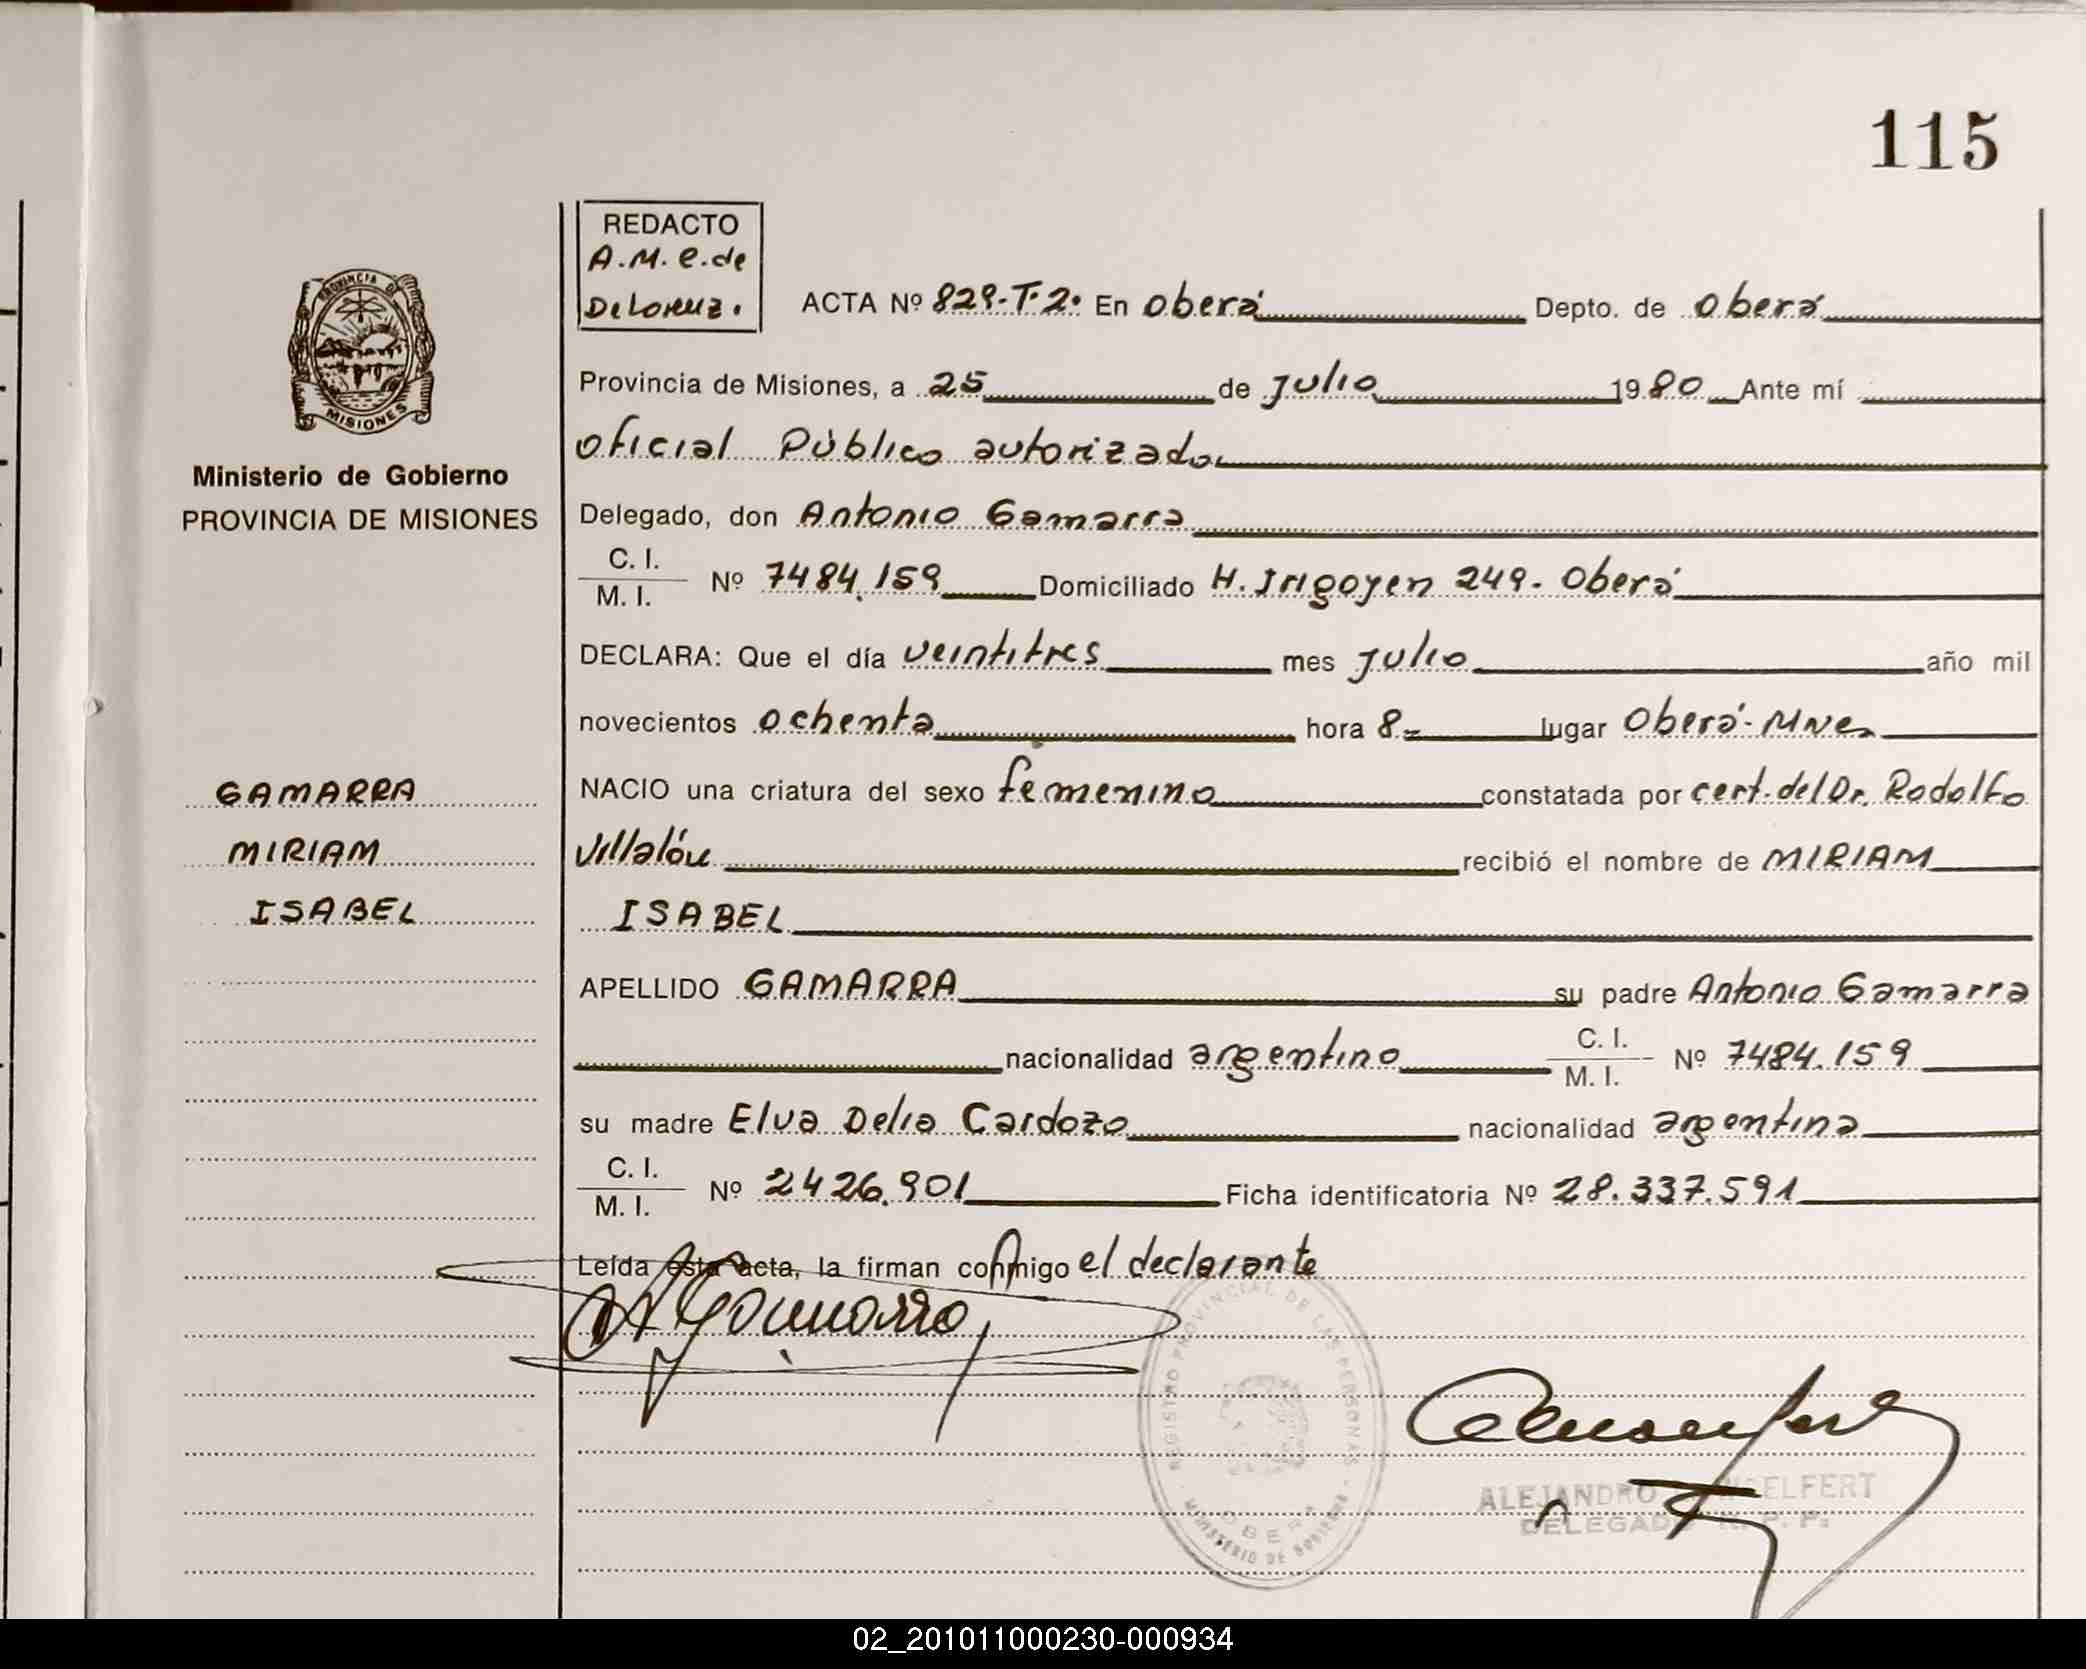 115
REDACTO
A.M.C. de
DeLorenz.
PROVINCIA DE
MISIONES
ACTA Nº 829-T-2º En Oberá Depto. de Oberá
Provincia de Misiones, a 25 de julio 1980 Ante mí
Oficial Público autorizado
Ministerio de Gobierno
PROVINCIA DE MISIONES
Delegado, don Antonio Gamarra
C. I.
M. I. Nº 7484.159 Domiciliado H. Irigoyen 249- Oberá
DECLARA: Que el día veintitres mes julio año mil
novecientos ochenta hora 8- lugar Oberá-Mnes
GAMARRA
MIRIAM
ISABEL
NACIO una criatura del sexo femenino constatada por cert. del Dr. Rodolfo
Villalón recibió el nombre de MIRIAM
ISABEL
APELLIDO GAMARRA su padre Antonio Gamarra
nacionalidad argentino C. I.
M. I. Nº 7484.159
su madre Elva Delia Cardozo nacionalidad argentina
C. I.
M. I. Nº 2426.901 Ficha identificatoria Nº 28.337.591
Leída esta acta, la firman conmigo el declarante
REGISTRO PROVINCIAL DE LAS PERSONAS
OBERA
MINISTERIO DE GOBIERNO
ALEJANDRO ELFERT
DELEGADO R. P. P.
02_201011000230-000934